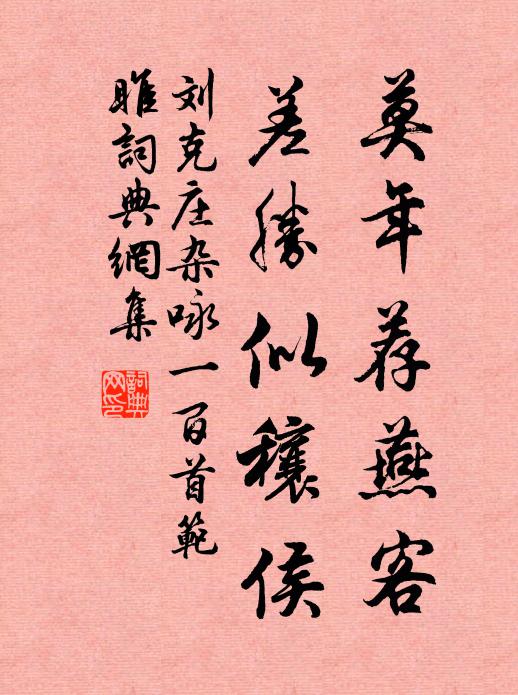 莫年荐燕客
差勝似穰侯
刘克庄杂咏一百首範
睢詞典網集
詞典网印